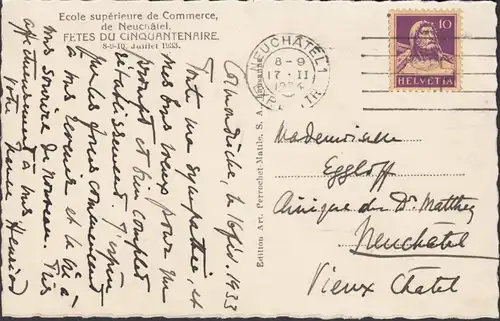 Ecole supérieure de Commerce,
de Neuchâtel.
FETES DU CINQUANTENAIRE.
8-9-10. Juillet 1933.
Cormondrèche, le 16 fév. 1933
Toute ma sympathie, et
mes bons voeux pour un
prompt et bien complet
rétablissement. J'espère
que les jours commencent
à vous
sourire de nouveau. Très
affectueusement à vous
votre
Edition Art. Perrochet-Matile. S. A. Lausanne
NEUCHÂTEL 1
8-9
17·II
10
HELVETIA
Mademoiselle
Eggloff
Clinique du Dr Matthey
Neuchatel
Vieux Châtel